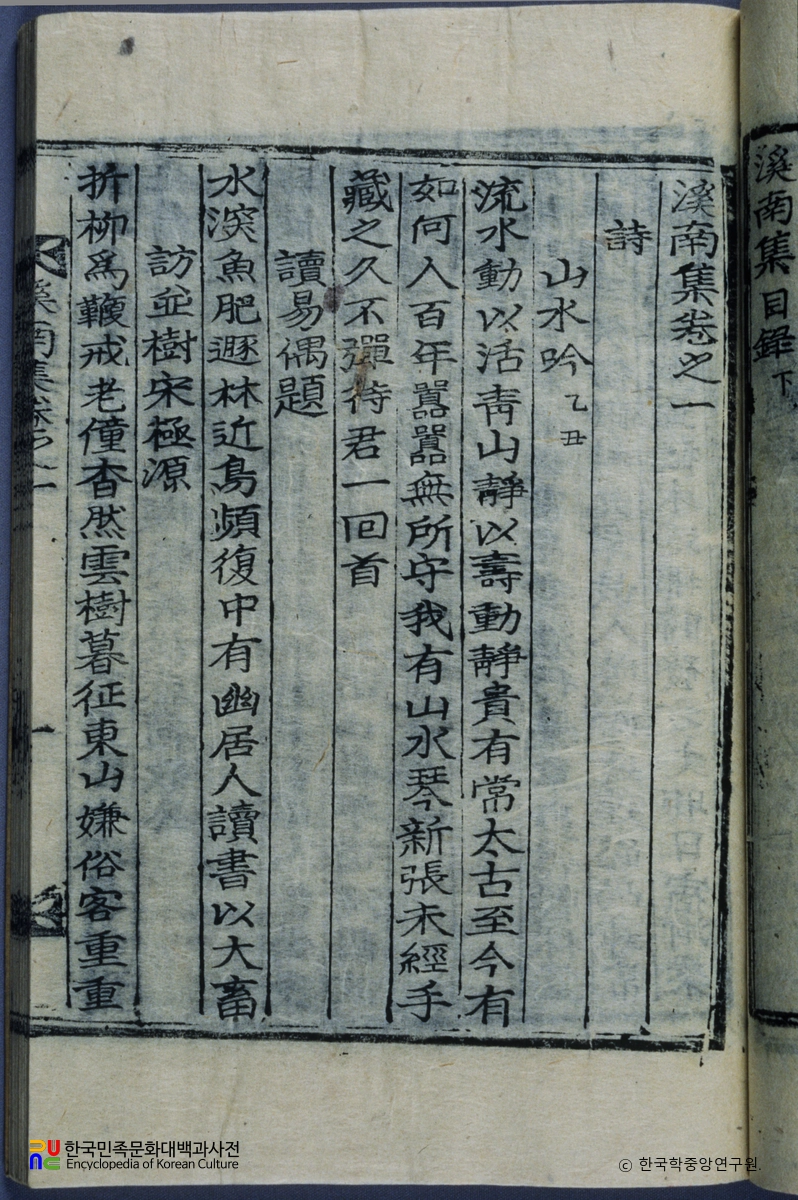 溪南集目錄下
溪南集卷之一
詩
山水吟 乙丑
流水動以活靑山靜以壽動靜貴有常太古至今有
如何人百年囂囂無所守我有山水琴新張未經手
藏之久不彈待君一回首
讀易偶題
水深魚肥遯林近鳥頻復中有幽居人讀書以大畜
訪竝樹宋極源
折柳爲鞭戒老僮杳然雲樹暮征東山嫌俗客重重
溪南集卷之一
一
한국민족문화대백과사전
Encyclopedia of Korean Culture
ⓒ 한국학중앙연구원.